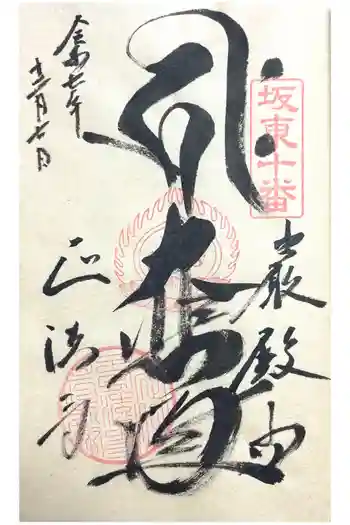 坂東十番
巌殿山
大悲殿
正法寺
令和七年
十二月七日